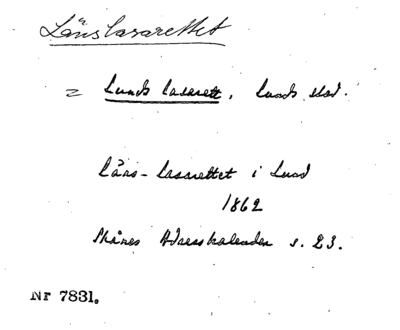 Länslasarettet
= Lunds lasarett, Lunds stad.
Läns-lasarettet i Lund
1862
Skånes Adresskalender s. 23.
Nr 7831.